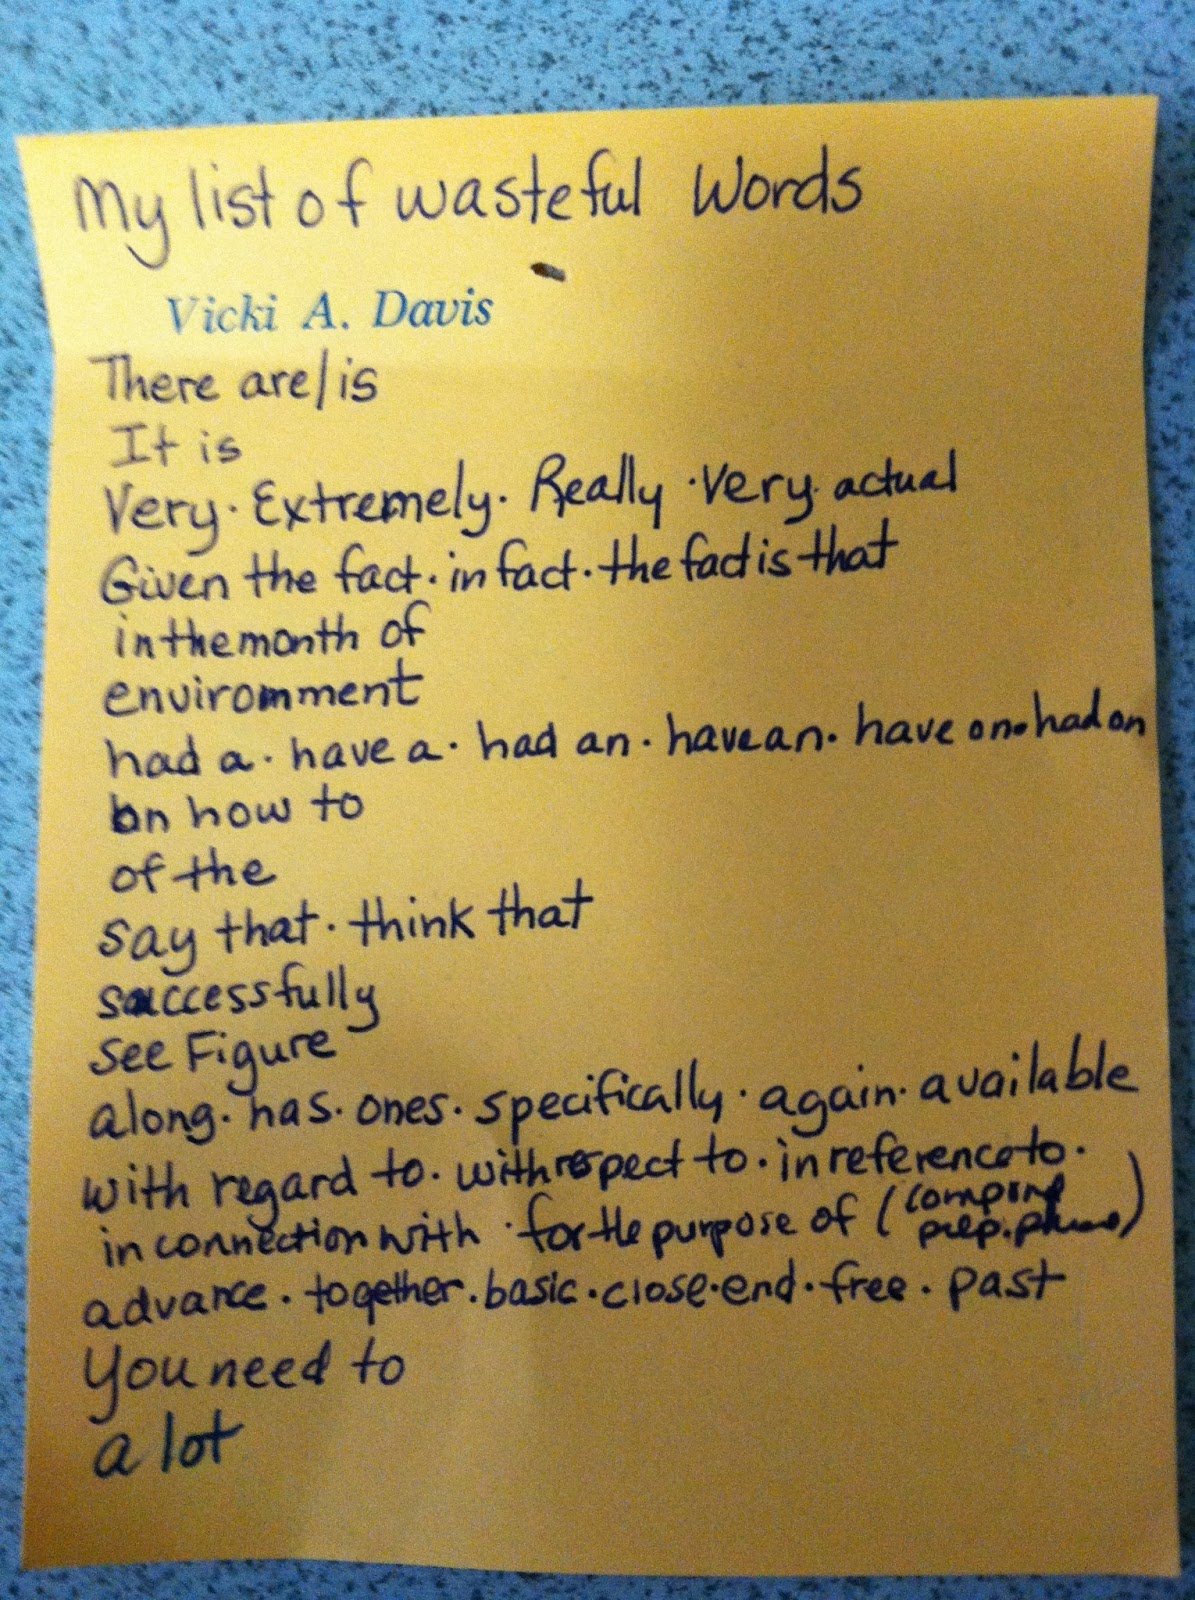 My list of wasteful Words
Vicki A. Davis
There are/is
It is
Very · Extremely · Really · Very · actual
Given the fact · in fact · the fact is that
in the month of
enviromment
had a · have a · had an · have an · have on · had on
on how to
of the
say that · think that
successfully
See Figure
along · has · ones · specifically · again · available
with regard to · with respect to · in reference to ·
in connection with · for the purpose of (compond
prep. )
advance · together · basic · close · end · free · past
You need to
a lot